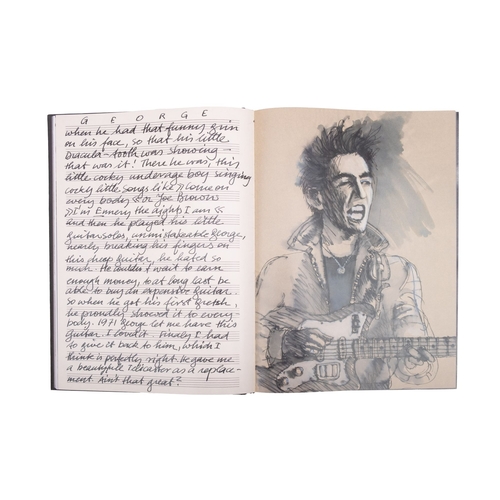 G E O R G E
when he had that funny grin
on his face, so that his little
Dracula-tooth was showing -
that was it! There he was, this
little cocky underage boy singing
cocky little songs like »Come on
every body« or Joe Browns
»I'm Ennery the Eight, I am«
and then he played his little
guitarsolos, unmistakeable George,
nearly breaking his fingers on
this cheap guitar, he hated so
much. He couldn't wait to earn
enough money, to at long last be
able to buy an expensive guitar.
So when he got his first Gretsch,
he proudly showed it to every-
body. 1971 George let me have this
guitar. I loved it. Finally I had
to give it back to him, which I
think is perfectly right. He gave me
a beautyfull Telecaster as a replace-
ment. Ain't that great?